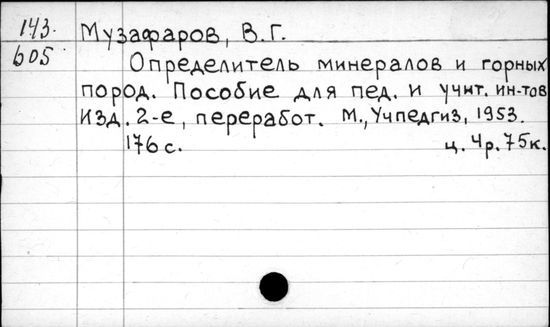 143. Музафаров, В.Г.
605
Определитель минералов и горных
пород. Пособие для пед. и учит. ин-тов
Изд. 2-е, переработ. М., Учпедгиз, 1953.
176 с. ц. 4р. 75к.